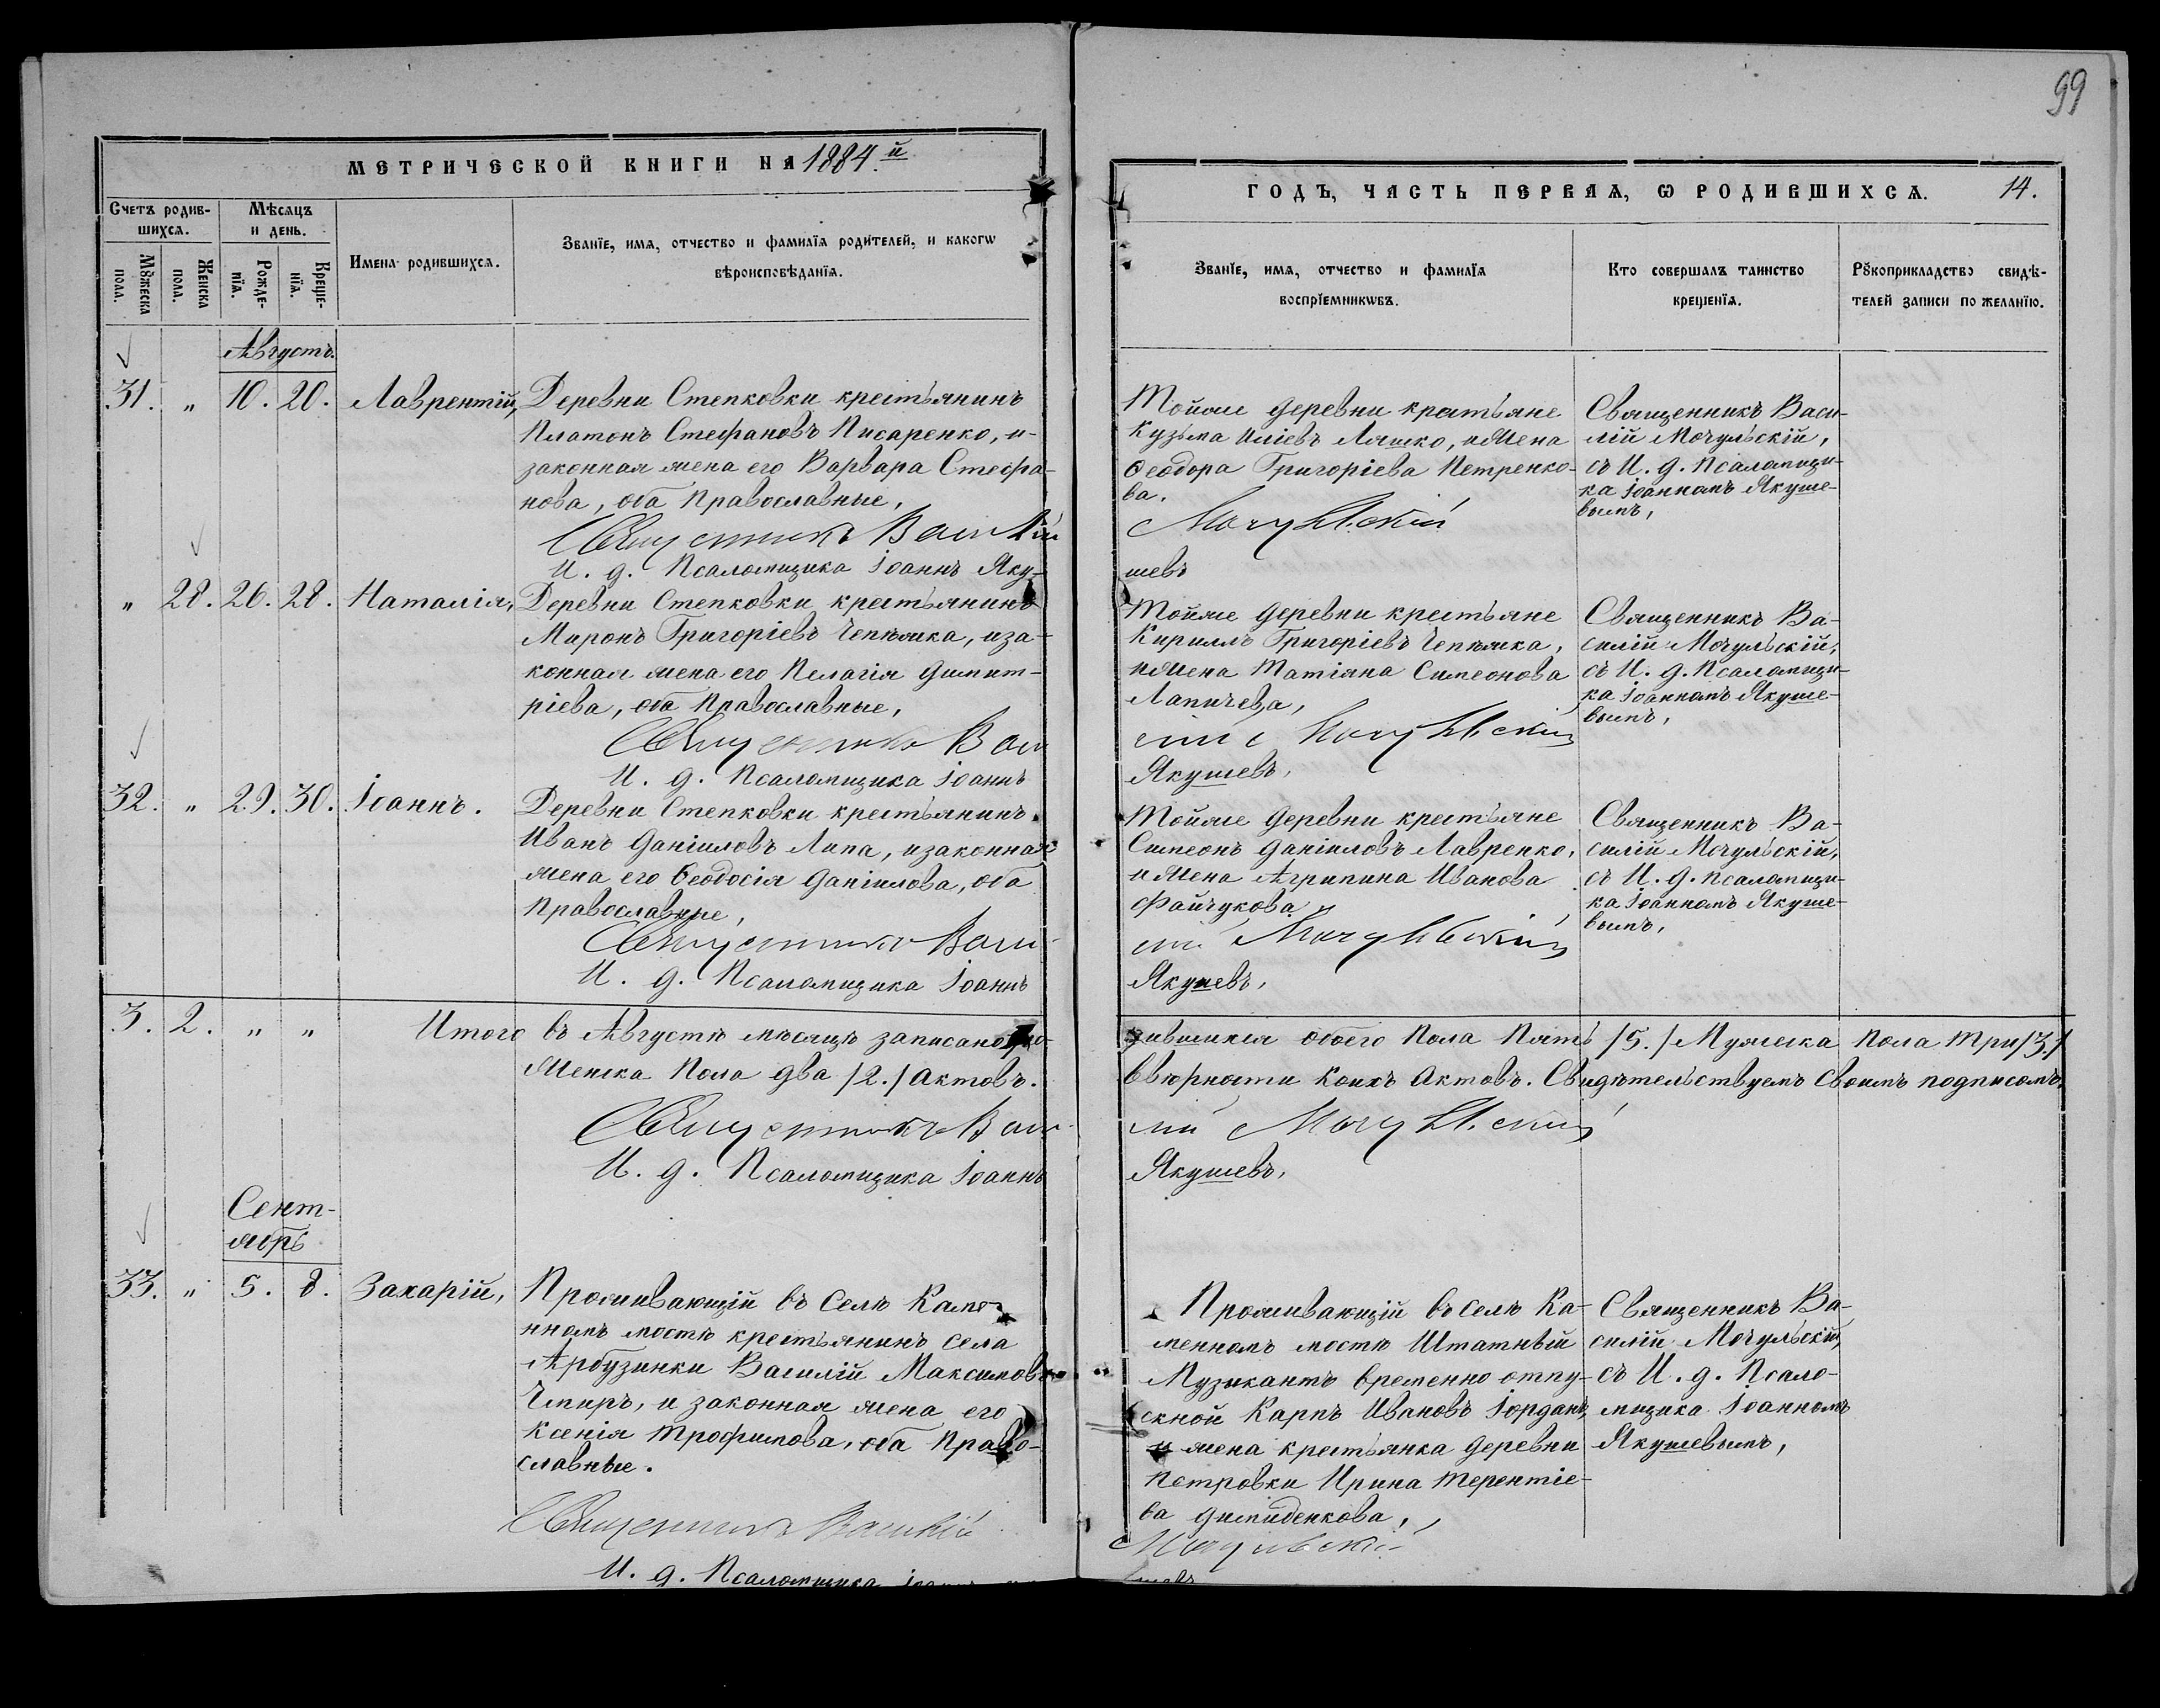 99
МЕТРИЧЕСКОЙ КНИГИ НА 1884.й
ГОДЪ, ЧАСТЬ ПЕРВАЯ, Ѡ РОДИВШИХСѦ. 14.
Счетъ родив-
шихсѧ.
Мѣсѧцъ
и день.
Имена родившихсѧ.
Званїе, имѧ, отчество и фамилїѧ родителей, и какогѡ
вѣроисповѣданїѧ.
Мꙋжеска
пола.
Женска
пола.
Рожде-
нїѧ.
Креще-
нїѧ.
Званїе, имѧ, отчество и фамилїѧ
воспрїемникѡвъ.
Кто совершалъ таинство
крещенїѧ.
Рꙋкоприкладство свидѣ-
телей записи по желанїю.
Августъ.
31. " 10. 20. Лаврентій,
Деревни Степковки крестьянинъ
Платонъ Стефановъ Писаренко, и
законная жена его Варвара Стефа-
нова, оба Православные,
Священникъ Василій
И. д. Псаломщика Іоаннъ Яку-
Тойже деревни крестьяне
Кузьма Иліевъ Ляшко, и жена
Ѳеодора Григоріева Петренко-
ва.
Мочульскій
шевъ
Священникъ Васи-
лій Мочульскій,
съ И. д. Псаломщи-
ка Іоанномъ Якуше-
вымъ,
" 28. 26. 28. Наталія,
Деревни Степковки крестьянинъ
Миронъ Григоріевъ Чепѣжка, и за-
конная жена его Пелагія Димит-
ріева, оба Православные,
Священникъ Васи
И. д. Псаломщика Іоаннъ
Тойже деревни крестьяне
Кириллъ Григоріевъ Чепѣжка,
и жена Татіяна Симеонова
Лапичева,
лій Мочульскій
Якушевъ,
Священникъ Ва-
силій Мочульскій,
съ И. д. Псаломщи-
ка Іоанномъ Якуше-
вымъ,
32. " 29. 30. Іоаннъ.
Деревни Степковки крестьянинъ
Иванъ Даніиловъ Липа, и законная
жена его Ѳеодосія Даніилова, оба
Православные,
Священникъ Васи
И. д. Псаломщика Іоаннъ
Тойже деревни крестьяне
Симеонъ Даніиловъ Лавренко,
и жена Агрипина Иванова
Файчукова
лій Мочульскій
Якушевъ,
Священникъ Ва-
силій Мочульскій,
съ И. д. Псаломщи-
ка Іоанномъ Якуше-
вымъ,
3. 2. " " Итого въ Августѣ мѣсяцѣ записано ро-
дившихся обоего Пола Пять /5./ Мужеска Пола Три /3./
Женска Пола Два /2./ Актовъ.
Ввѣрности коихъ Актовъ. Свидѣтельствуемъ своимъ подписомъ.
Священникъ Васи-
лій Мочульскій
И. д. Псаломщика Іоаннъ
Якушевъ,
Сент-
ябрь
33. " 5. 8. Захарій,
Проживающій въ Селѣ Каме-
нномъ мостѣ крестьянинъ села
Арбузинки Василій Максимовъ
Чмиръ, и законная жена его
Ксенія Трофимова, оба Право-
славные.
Священникъ Василій
И. д. Псаломщика
Проживающій въ селѣ Ка-
менномъ мостѣ Штатный
Музикантъ временно отпу-
скной Карпъ Ивановъ Іорданъ,
и жена крестьянка деревни
Петровки Ирина Терентіе-
ва Димиденкова,
Мочульскій
Священникъ Ва-
силій Мочульскій,
съ И. д. Псало-
мщика Іоанномъ
Якушевымъ,